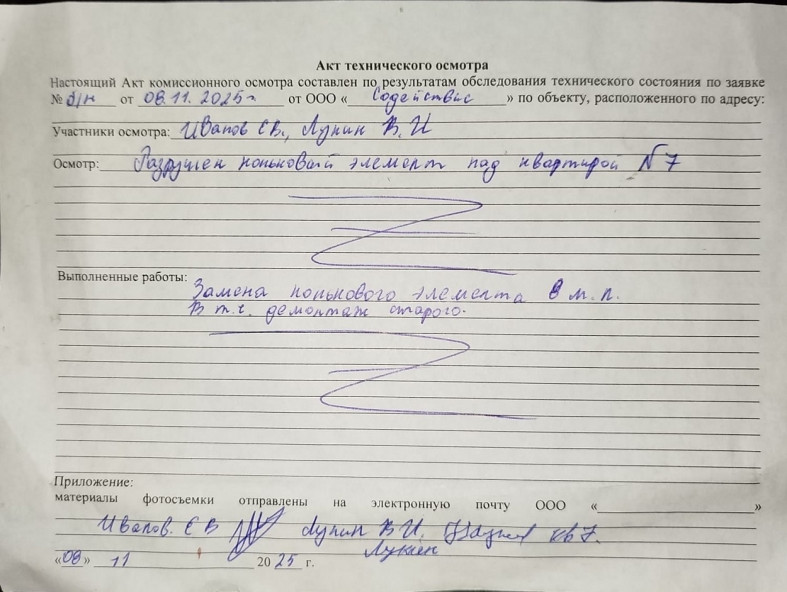 Акт технического осмотра
Настоящий Акт комиссионного осмотра составлен по результатам обследования технического состояния по заявке
№ б/н от 08.11.2025г от ООО « Содействие » по объекту, расположенного по адресу:
Участники осмотра: Иванов Е В., Лунин В. И
Осмотр: Разрушен коньковый элемент над квартирой №7
Выполненные работы:
Замена конькового элемента 8 м.п.
В т.ч. демонтаж старого.
Приложение:
материалы фотосъемки отправлены на электронную почту ООО « »
Иванов. Е В Лунин В И. кв 7.
«08» 11 2025 г.